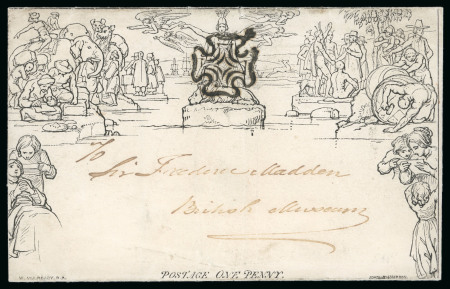 To
Sir Frederic Madden
British Museum
POSTAGE ONE PENNY.
W. MULREADY. R.A.